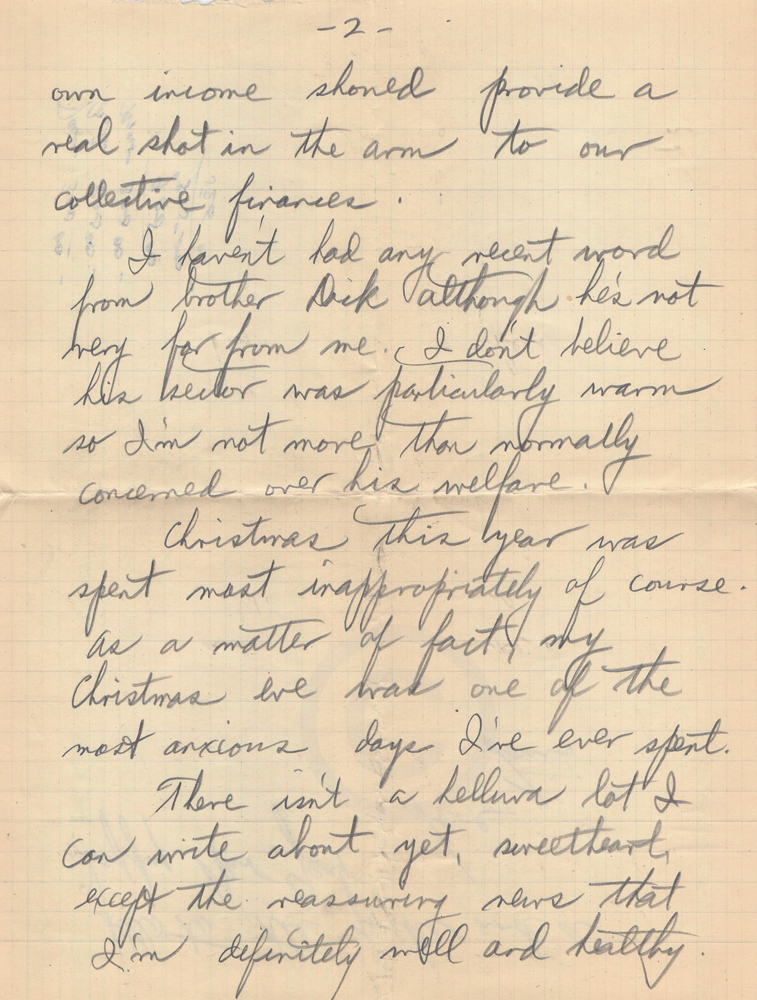 -2-
own income should provide a
real shot in the arm to our
collective finances.
I haven't had any recent word
from brother Dick although he's not
very far from me. I don't believe
his sector was particularly warm
so I'm not more than normally
concerned over his welfare.
Christmas this year was
spent most inappropriately of course.
As a matter of fact, my
Christmas eve was one of the
most anxious days I've ever spent.
There isn't a helluva lot I
can write about yet, sweetheart,
except the reassuring news that
I'm definitely well and healthy.